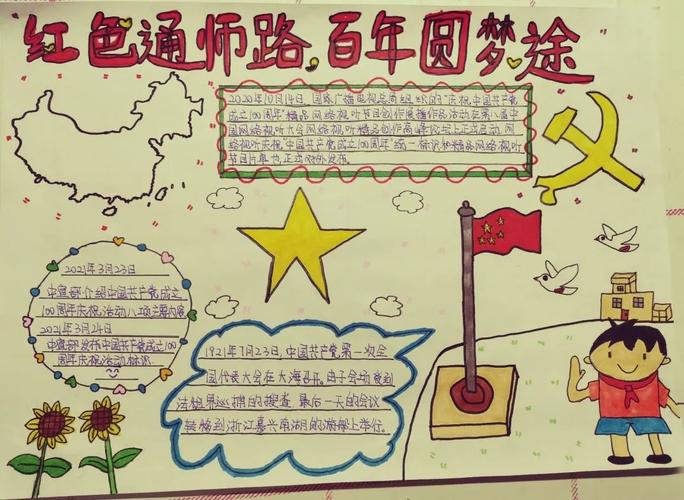 红色通师路,百年圆梦途
2020年10月14日,国家广播电视总局组织的"庆祝中国共产党
成立100周年"精品网络视听节目创作展播作品活动在第八届中
国网络视听大会网络视听精品创作高峰论坛上正式启动,网
络视听庆祝"中国共产党成立100周年"统一标识和精品网络视听
节目片单也正式对外发布。
2021年3月23日
中宣部介绍中国共产党成立
100周年庆祝活动八项主要内容
2021年3月24日
中宣部发布中国共产党成立100
周年庆祝活动标识
1921年7月23日,中国共产党第一次全
国代表大会在大海召开。由于会场受到
法租界巡捕的搜查 最后一天的会议
转移到浙江嘉兴南湖的游船上举行。